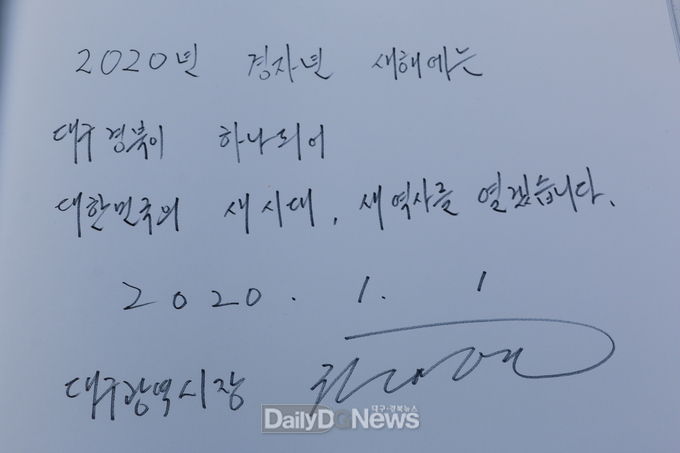 2020년 경자년 새해에는
대구경북이 하나되어
대한민국의 새시대, 새역사를 열겠습니다.
2020. 1. 1
대구광역시장
대구·경북뉴스
DailyDGNews